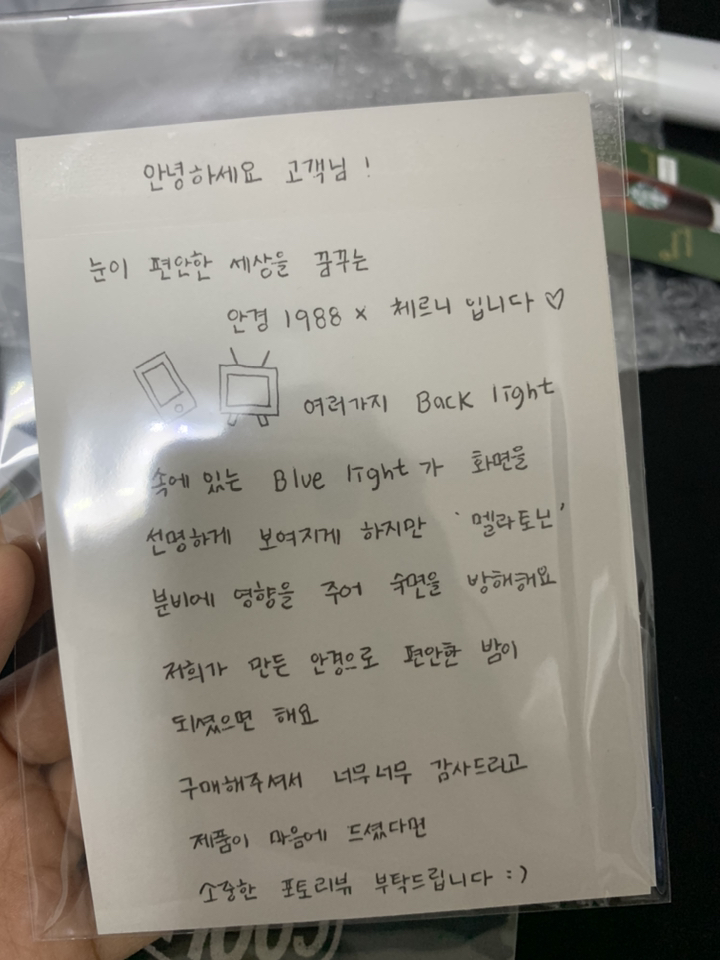 안녕하세요 고객님 !
눈이 편안한 세상을 꿈꾸는
안경 1988 x 체르니 입니다 ♡
여러가지 Back light
속에 있는 Blue light 가 화면을
선명하게 보여지게 하지만 '멜라토닌'
분비에 영향을 주어 숙면을 방해해요
저희가 만든 안경으로 편안한 밤이
되셨으면 해요
구매해주셔서 너무너무 감사드리고
제품이 마음에 드셨다면
소중한 포토리뷰 부탁드립니다 :)